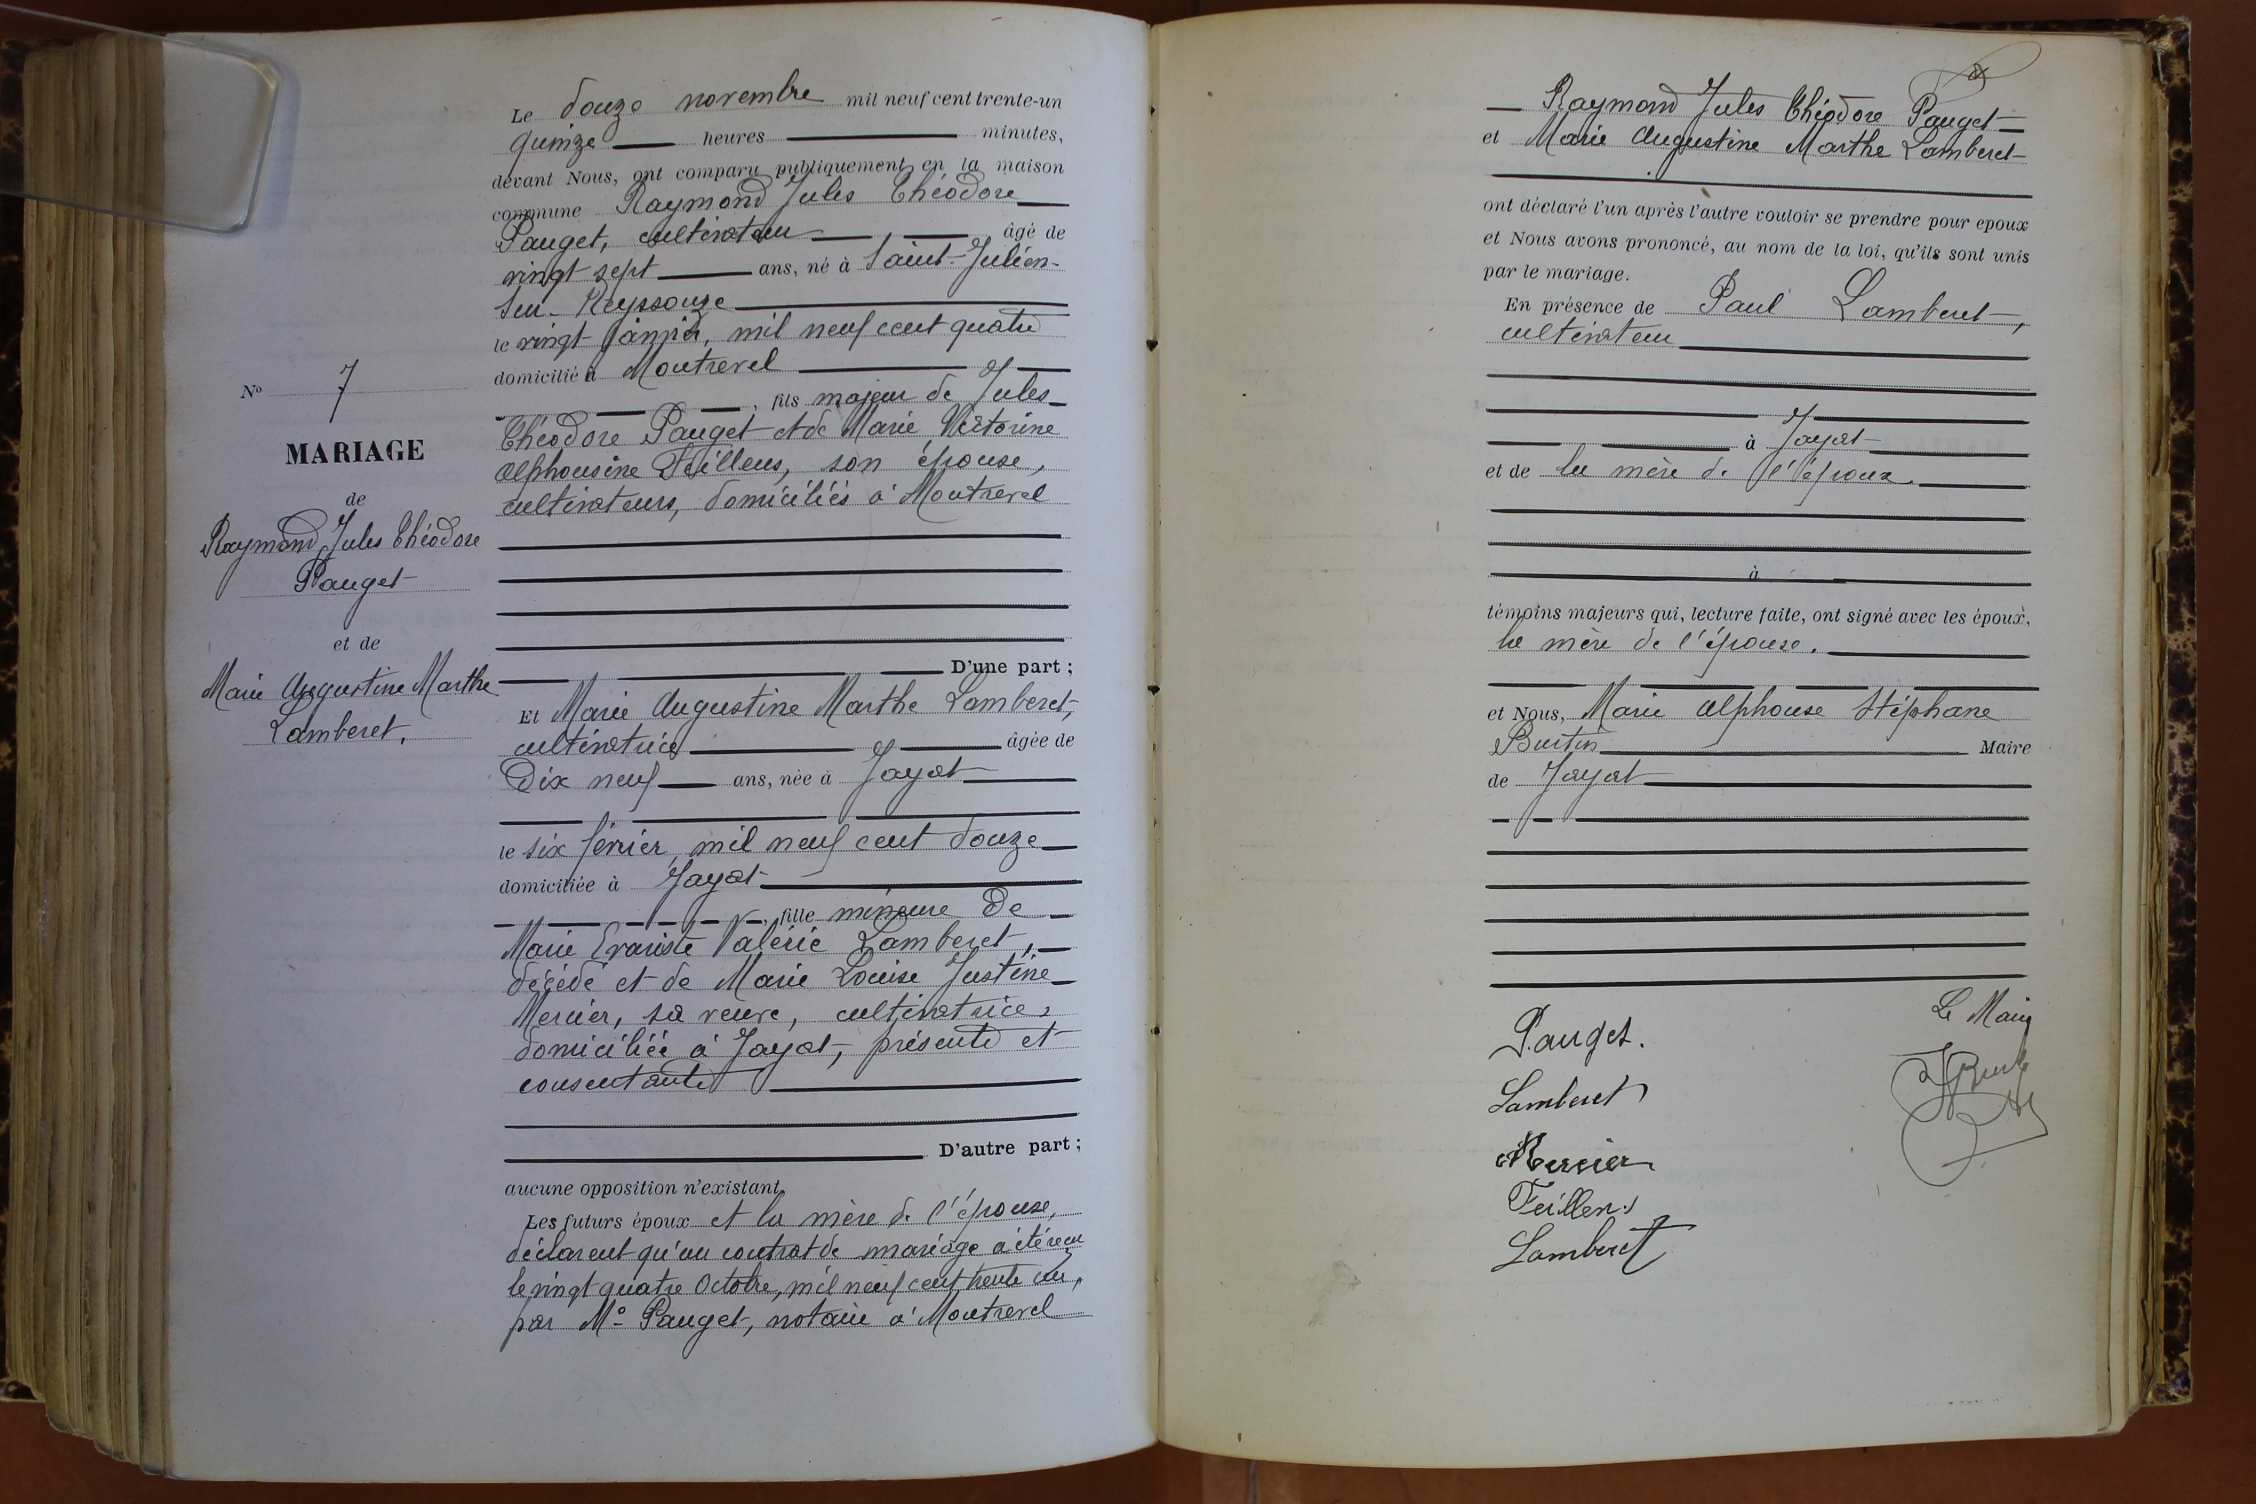 N° 7
MARIAGE
de
Raymond Jules Théodore
Pauget
et de
Marie Augustine Marthe
Lamberet.
Le douze novembre mil neuf cent trente-un
quinze heures minutes,
devant Nous, ont comparu publiquement en la maison
commune Raymond Jules Théodore
Pauget, cultivateur, âgé de
vingt sept ans, né à Saint-Julien-
sur-Reyssouze
le vingt janvier, mil neuf cent quatre
domicilié à Montrevel
, fils majeur de Jules
Théodore Pauget et de Marie Victorine
Alphonsine Feillens, son épouse,
cultivateurs, domiciliés à Montrevel
D'une part ;
Et Marie Augustine Marthe Lamberet,
cultivatrice âgée de
dix neuf ans, née à Jayat
le six février, mil neuf cent douze
domiciliée à Jayat
, fille mineure de
Marie Evariste Valérie Lamberet,
décédé et de Marie Louise Justine
Mercier, sa veuve, cultivatrice,
domiciliée à Jayat, présente et
consentante
D'autre part ;
aucune opposition n'existant.
Les futurs époux et la mère de l'épouse,
déclarent qu'un contrat de mariage a été reçu
le vingt quatre Octobre, mil neuf cent trente un,
par Me Pauget, notaire à Montrevel
Raymond Jules Théodore Pauget
et Marie Augustine Marthe Lamberet
ont déclaré l'un après l'autre vouloir se prendre pour epoux
et Nous avons prononcé, au nom de la loi, qu'ils sont unis
par le mariage.
En présence de Paul Lamberet,
cultivateur
à Jayat
et de la mère de l'époux.
à
témoins majeurs qui, lecture faite, ont signé avec les époux,
la mère de l'épouse.
et Nous, Marie Alphonse Stéphane
Burtin Maire
de Jayat
Pauget.
Le Maire
Lamberet
Mercier
Feillens
Lamberet